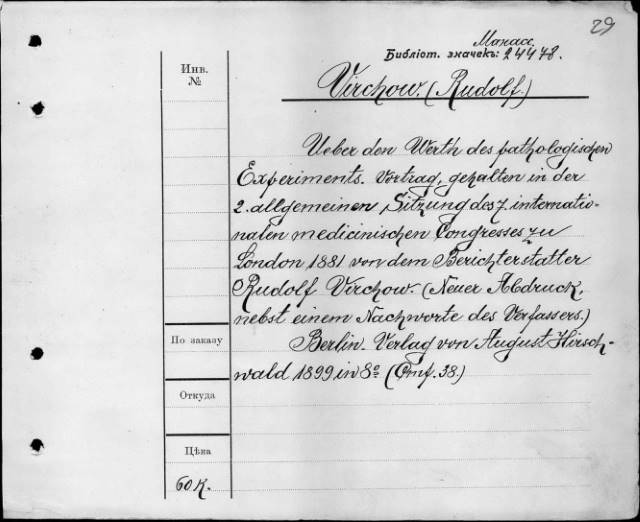 29
Манас.
Библіот. значекъ: 24478.
Инв.
№
Virchow. (Rudolf.)
Ueber den Werth des pathologischen
Experiments. Vortrag, gehalten in der
2. allgemeinen Sitzung des 7. internatio-
nalen medicinischen Congresses zu
London 1881 von dem Berichterstatter
Rudolf Virchow. (Neuer Abdruck
nebst einem Nachworte des Verfassers.)
Berlin. Verlag von August Hirsch-
wald 1899 in 8º (Стр. 38.)
По заказу
Откуда
Цѣна
60 к.